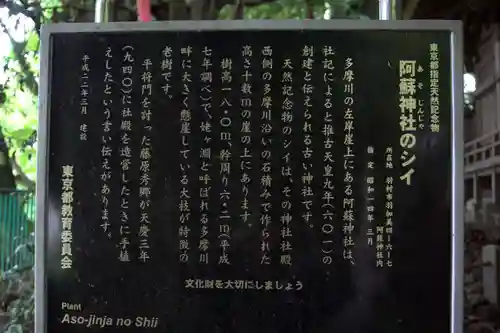 東京都指定天然記念物
阿蘇神社のシイ
あそじんじゃ
所在地 羽村市羽加美四-六-七
阿蘇神社内
指定 昭和一四年三月
多摩川の左岸崖上にある阿蘇神社は、
社記によると推古天皇九年(六〇一)の
創建と伝えられる古い神社です。
天然記念物のシイは、その神社社殿
西側の多摩川沿いの石積みで作られた
高さ十数mの崖の上にあります。
樹高一八・〇m、幹周り六・二m(平成
七年調べ)で、姥ヶ淵と呼ばれる多摩川
畔に大きく懸崖している木枝が特徴の
老樹です。
平将門を討った藤原秀郷が天慶三年
(九四〇)に社殿を造営したときに手植
えしたという言い伝えがあります。
平成二二年三月 建設
東京都教育委員会
文化財を大切にしましょう
Plant
Aso-jinja no Shii